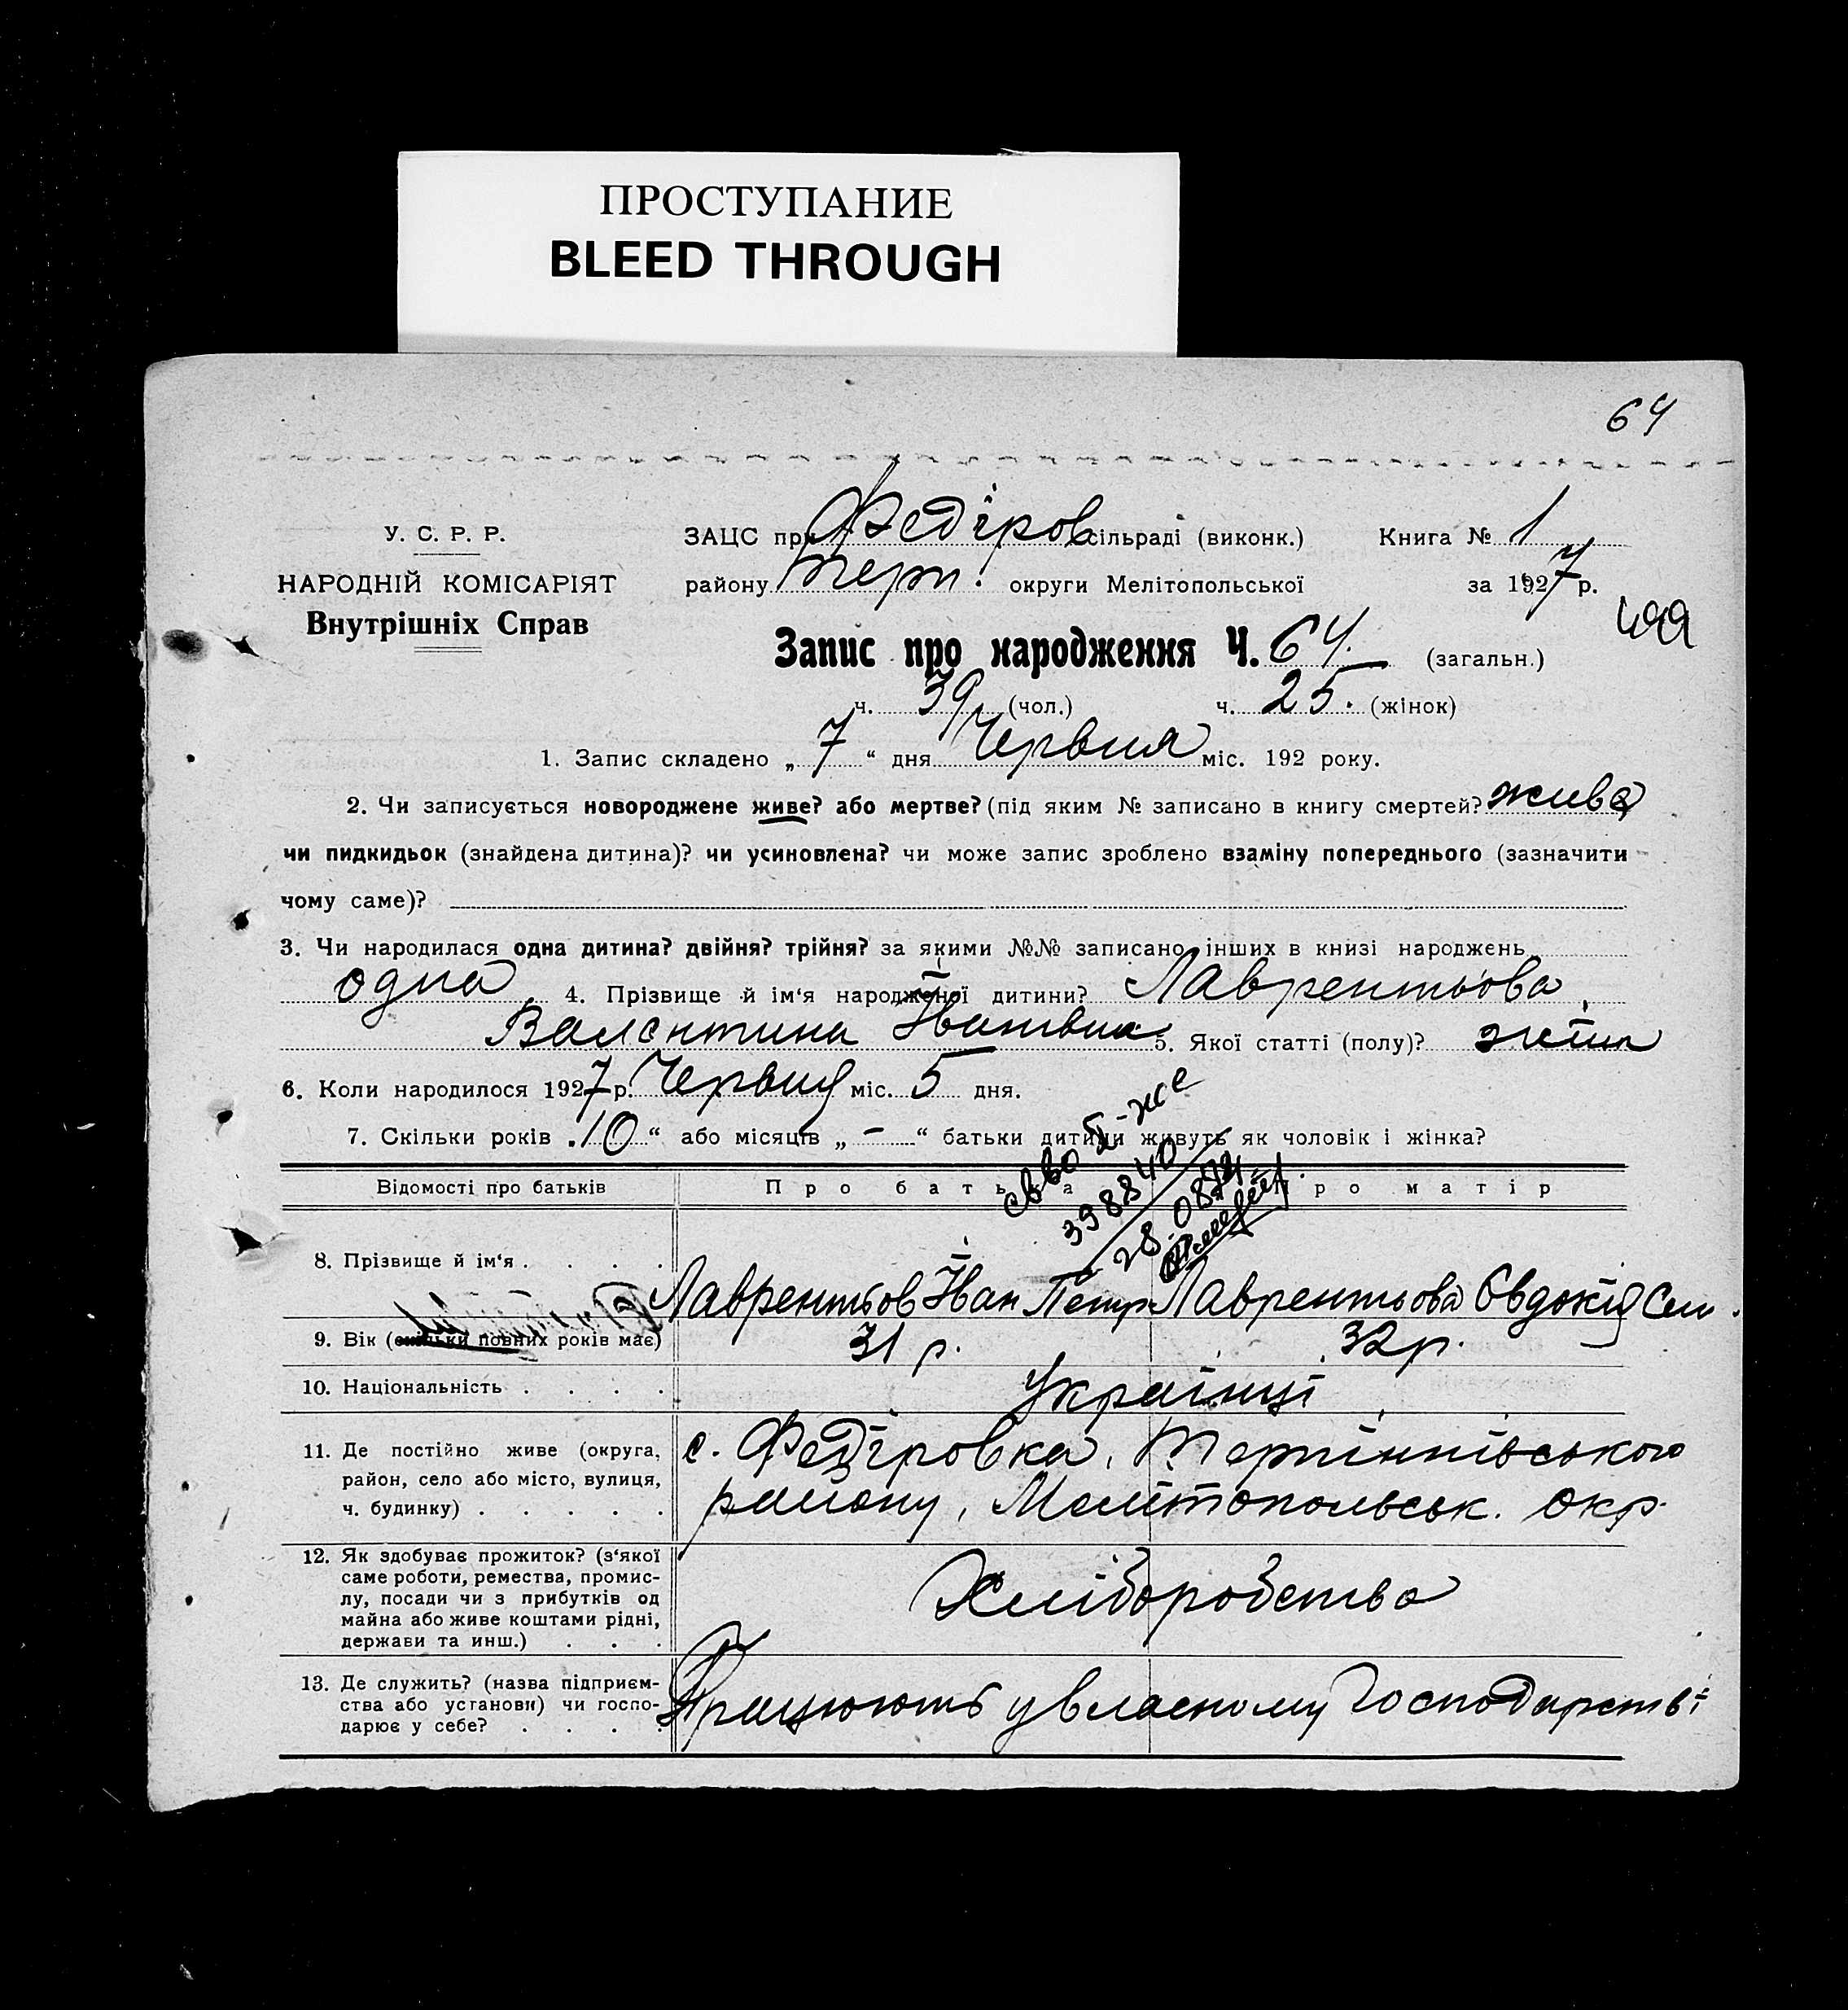 ПРОСТУПАНИЕ
BLEED THROUGH
64
У. С. Р. Р.
НАРОДНІЙ КОМІСАРІЯТ
Внутрішніх Справ
ЗАЦС при Федіров сільраді (виконк.) Книга № 1
району Терп. округи Мелітопольської за 1927 р.
499
Запис про народження Ч. 64. (загальн.)
ч. 39 (чол.) ч. 25. (жінок)
1. Запис складено „ 7 “ дня Червня міс. 192 року.
2. Чи записується новороджене живе? або мертве? (під яким № записано в книгу смертей? жива
чи пидкидьок (знайдена дитина)? чи усиновлена? чи може запис зроблено взаміну попереднього (зазначити
чому саме)?
3. Чи народилася одна дитина? двійня? трійня? за якими №№ записано інших в книзі народжень
одна 4. Прізвище й ім‘я народженої дитини? Лаврентьова
Валентина Іванівна 5. Якої статті (полу)? жіно
6. Коли народилося 1927 р. Червня міс. 5 дня.
7. Скільки років „ 10 “ або місяців „ - “ батьки дитини живуть як чоловік і жінка?
свво II-жс
398840
28.08.74
Відомості про батьків Про батька Про матір
8. Прізвище й ім‘я . . . . Лаврентьов Іван Петр Лаврентьова Євдокія Сем.
9. Вік (скільки повних років має) 31 р. 32 р.
10. Національність . . . . Українці
11. Де постійно живе (округа,
район, село або місто, вулиця,
ч. будинку) . . . . .
с. Федіровка, Терпіннівського
району, Мелітопольськ. окр.
12. Як здобуває прожиток? (з‘якої
саме роботи, ремества, промис-
лу, посади чи з прибутків од
майна або живе коштами рідні,
держави та инш.) . . .
Хліборобства
13. Де служить? (назва підприєм-
ства або установи) чи госпо-
дарює у себе? . . . .
Працюють у власному господарстві